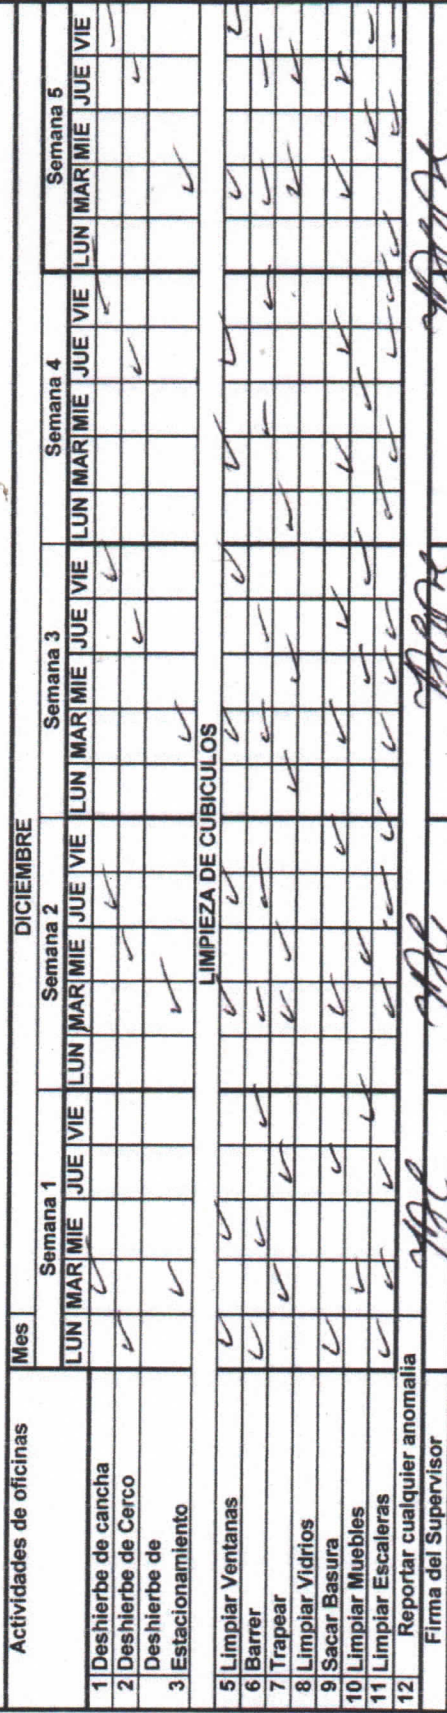 Actividades de oficinas Mes DICIEMBRE
Semana 1 Semana 2 Semana 3 Semana 4 Semana 5
LUN MAR MIE JUE VIE LUN MAR MIE JUE VIE LUN MAR MIE JUE VIE LUN MAR MIE JUE VIE LUN MAR MIE JUE VIE
1 Deshierbe de cancha
2 Deshierbe de Cerco
Deshierbe de
3 Estacionamiento
LIMPIEZA DE CUBICULOS
5 Limpiar Ventanas
6 Barrer
7 Trapear
8 Limpiar Vidrios
9 Sacar Basura
10 Limpiar Muebles
11 Limpiar Escaleras
12 Reportar cualquier anomalia
Firma del Supervisor